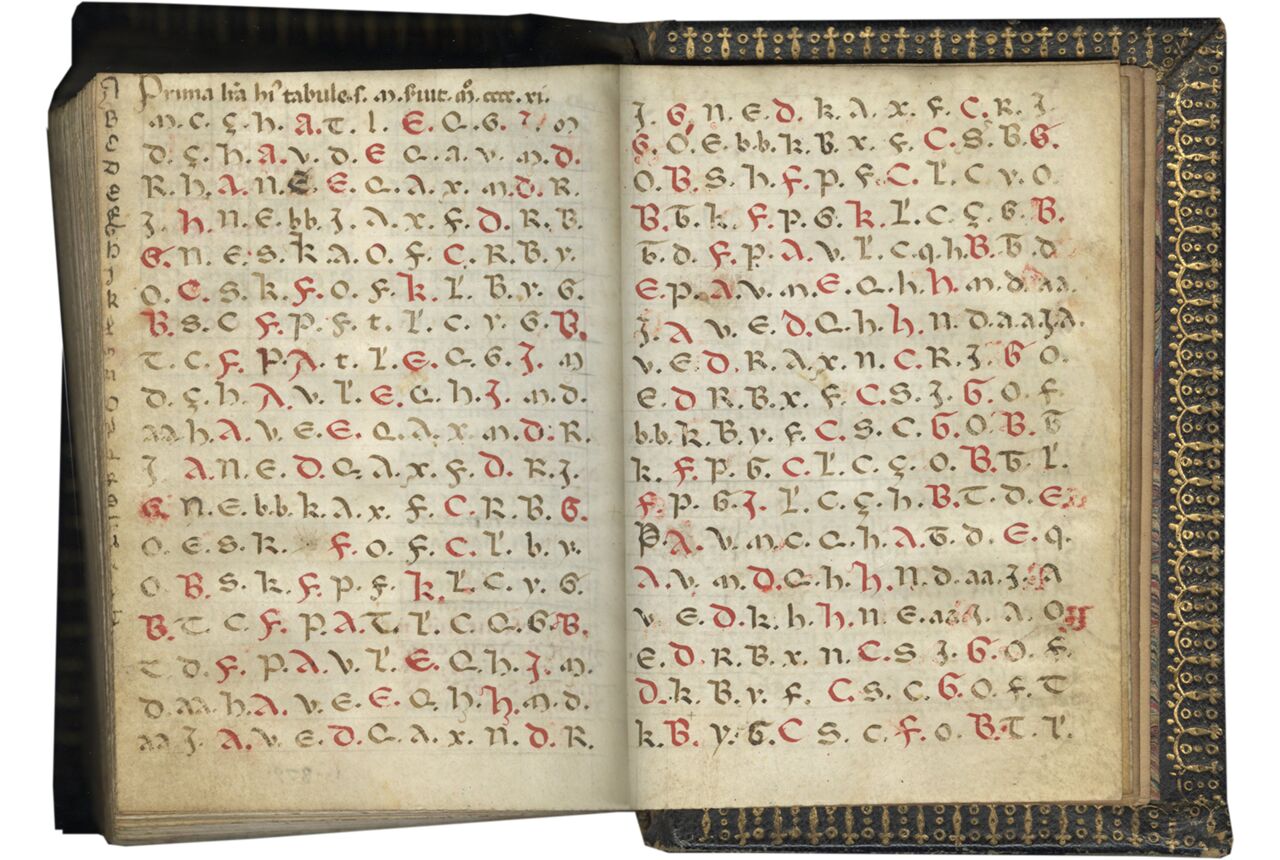 Prima lr̄a hi᷒ tabule.s. m. fiut. m̊. cccc. xi.
m. c. ç. h. a. t. l. e. Q. G. m
d. ç. h. a. v. d. e Q. a. v. m. d.
R. h. a. n. E. e. Q. a. x. m. d. R.
J. h. n. E. bb. J. A. x. f. d. R. B.
G. n. e. s. k. a. o. f. C. R. B. y.
o. e. s. k. f. o. f. k. l'. B. y. G.
B. s. c f. p. f. t. l'. c. y. G. B.
t. c. f. p. A. t. l'. e. Q. G. J. m
d. ç. h. A. v. l'. e. Q. h. J. m. d.
aa. h. a. v. e. e. Q. A. x. m. d. R.
J A. n. E. d. Q. A. x. f. d. R. J.
G. n. E. b.b. k. A. x. f. C. R. B. G.
o. e. s. k. f. o. f. C. l'. b. y.
o. B. s. k. f. p. f. k. l'. C. y. G.
B. t. C. f. p. A. t. l'. c. Q. G. B.
t. d. f. p. A. v. l'. e. Q. h. J. m.
d. aa. h. a. v. e. e. Q. h. h. m. d.
aa J. a. v. e. d. Q. a. x. n. d. R.
J. G. n. e. d. k. a. x. f. C. R. J.
G. O. E. b.b. k. B. x. f. C. S. B. G.
O. B. S. h. f. p. f. C. l'. C y. O.
B. t. k. f. p. G. k. l'. C. ç. G. B.
t. d. f. p. A. v. l'. c. q. h. B. t. d
E. p. A. v. m. e. Q. h. h. m. d. aa.
J. A v. E. d. Q. h. h. n. d. a.a. J. A.
v. e. d. R. a. x. n. C. R. J. G o.
e. d R. B. x. f. C S. J. G. O. f
b.b. k. B. y. f. C. S. C. G. O. B. t
k. f. p. G. C. l'. C. ç. o. B. t. l'.
f. p. G. J. l'. C. ç. h. B. t. d. E.
p. A. v. m. c. Q. h. A. t. d. e. q.
A. v. m. d. Q. h. h. n. d. aa. J. A
v. e. d. k. h. h. n. E. aa. J. A. O
e. d. R. B. x. n. C. S J. G. O. f.
d. k. B. y. f. C. s. c. G. O. f. t
k. B. y. G. C S. c. f. o. B. t. l'.